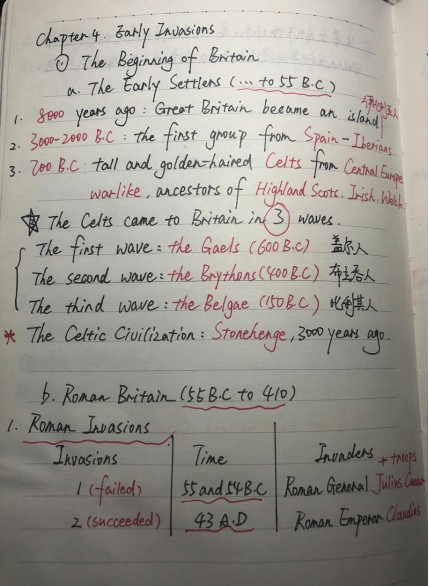 Chapter 4. Early Invasions
① The Beginning of Britain
a. The Early Settlers (... to 55 B.C)
1. 8000 years ago : Great Britain became an island
2. 3000-2000 B.C : the first group from Spain - Iberians.
3. 700 B.C : tall and golden-haired Celts from Central Europe
warlike, ancestors of Highland Scots. Irish. Welsh
The Celts came to Britain in 3 waves.
The first wave : the Gaels (600 B.C) 盖尔人
The second wave : the Brythons (400 B.C) 布立吞人
The third wave : the Belgae (150 B.C) 比利其人
* The Celtic Civilization : Stonehenge, 3000 years ago.
b. Roman Britain (55 B.C to 410)
1. Roman Invasions
Invasions Time Invaders + troops
1 (failed) 55 and 54 B.C Roman General Julius Caesar
2 (succeeded) 43 A.D Roman Emperor Claudius